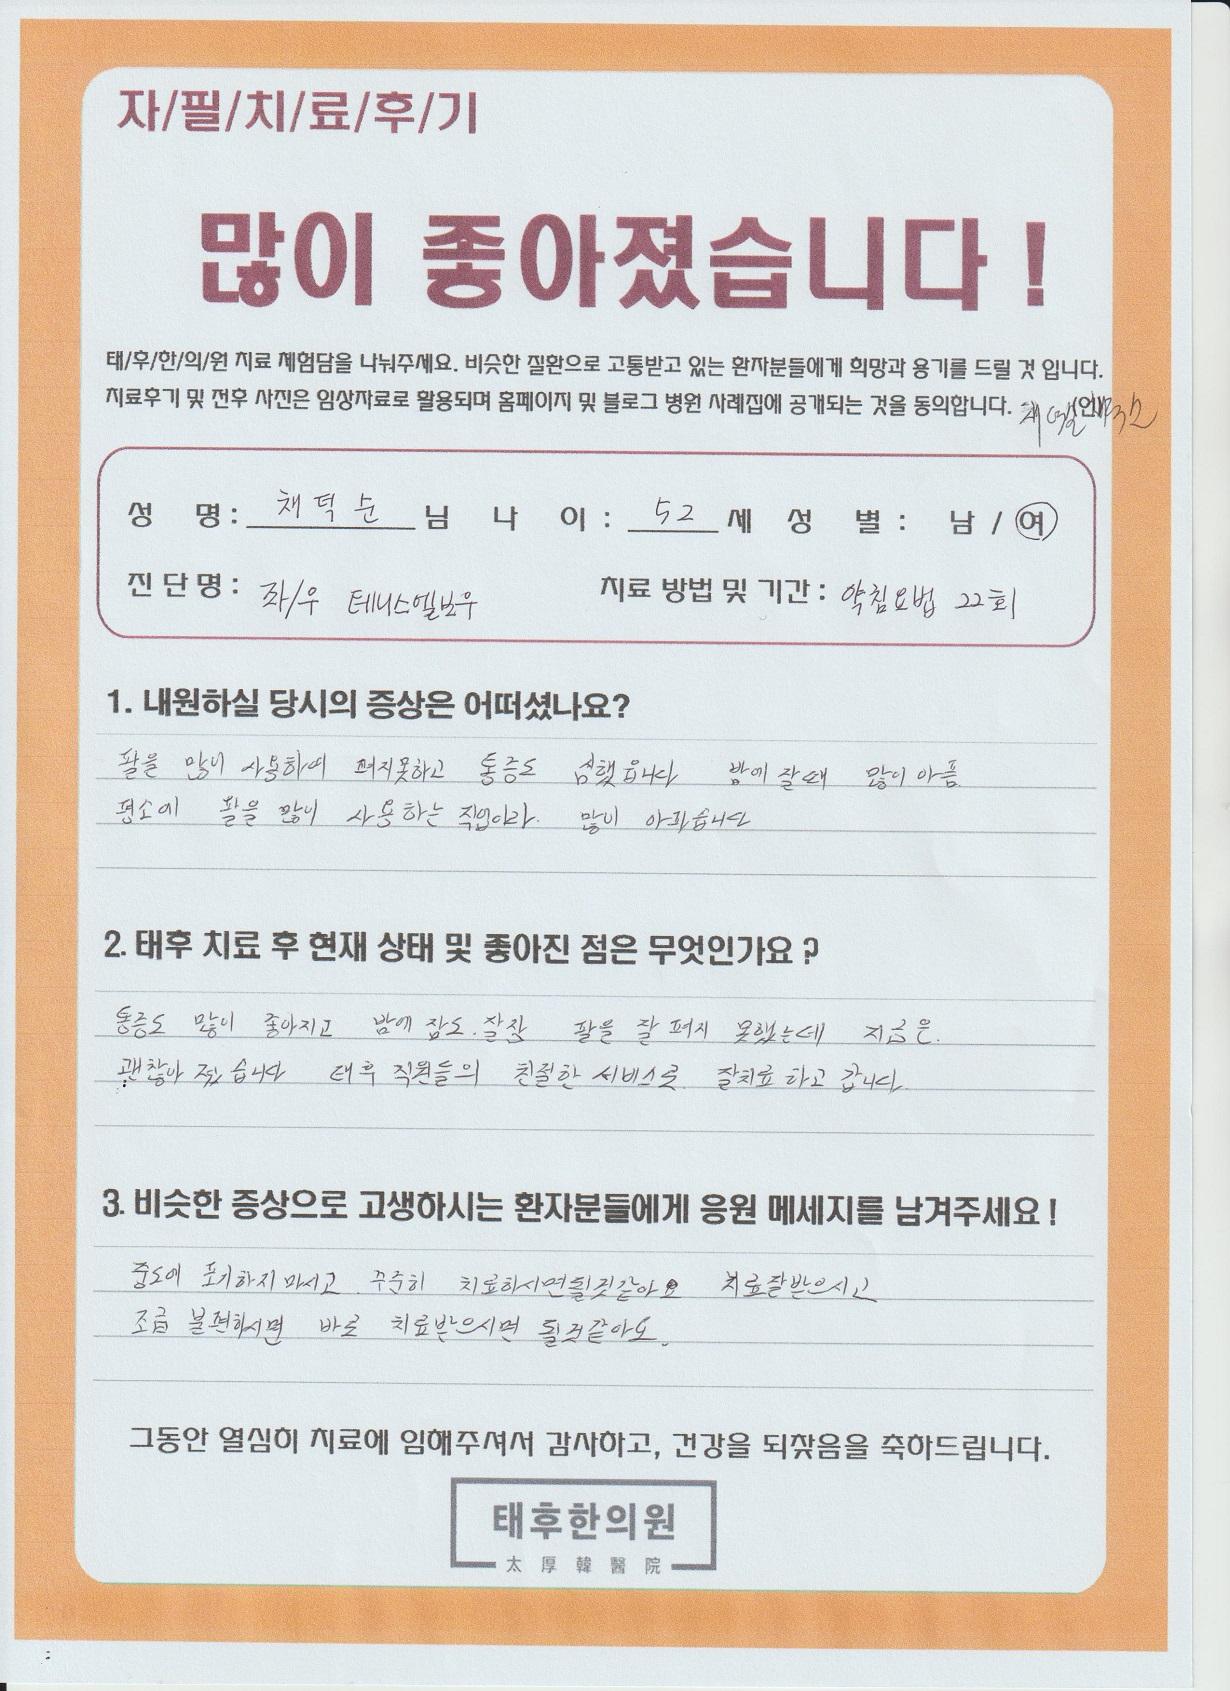 자/필/치/료/후/기
많이 좋아졌습니다 !
태/후/한/의/원 치료 체험담을 나눠주세요. 비슷한 질환으로 고통받고 있는 환자분들에게 희망과 용기를 드릴 것 입니다.
치료후기 및 전후 사진은 임상자료로 활용되며 홈페이지 및 블로그 병원 사례집에 공개되는 것을 동의합니다.
성 명 : 채덕순 님 나 이 : 52 세 성 별 : 남 / 여
진 단 명 : 좌/우 테니스엘보우 치료 방법 및 기간 : 약침요법 22회
1. 내원하실 당시의 증상은 어떠셨나요?
팔을 많이 사용하여 펴지못하고 통증도 심했읍니다 밤에 잘때 많이 아픔
평소에 팔을 많이 사용하는 직업이라. 많이 아파습니다
2. 태후 치료 후 현재 상태 및 좋아진 점은 무엇인가요 ?
통증도 많이 좋아지고 밤에 잠도. 잘잠 팔을 잘 펴지 못했는데 지금은.
괜찮아 졌습니다 태후 직원들의 친절한 서비스로 잘치료 하고 갑니다.
3. 비슷한 증상으로 고생하시는 환자분들에게 응원 메세지를 남겨주세요 !
중도에 포기하지 마시고. 꾸준히 치료하시면될것같아요 치료잘받으시고
조금 불편하시면 바로 치료받으시면 될것같아요.
그동안 열심히 치료에 임해주셔서 감사하고, 건강을 되찾음을 축하드립니다.
태후한의원
太厚韓醫院